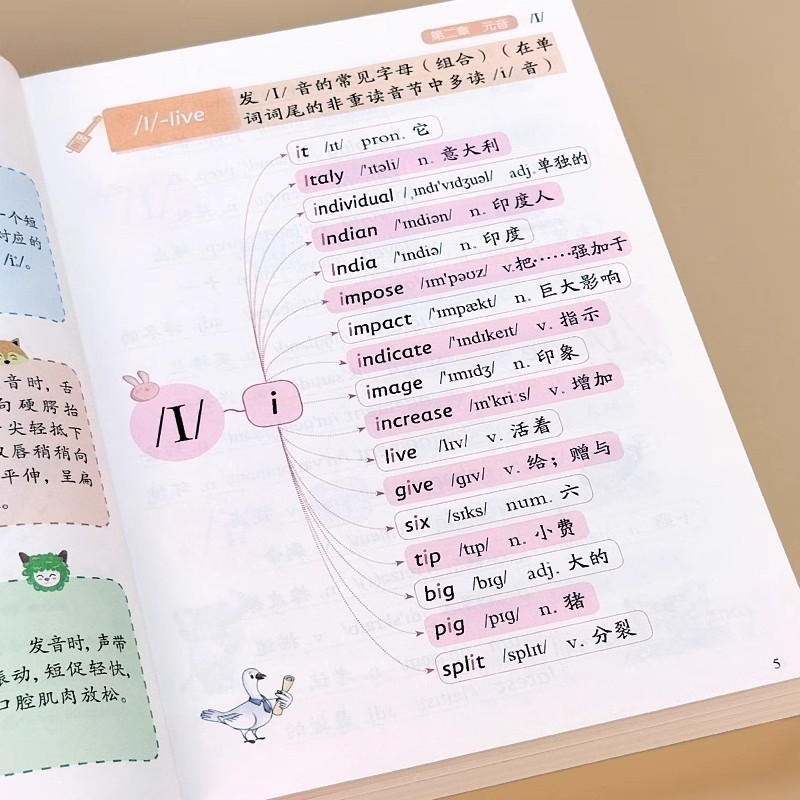 第二章 元音 /I/
/I/-live
发 /I/ 音的常见字母（组合）（在单
词词尾的非重读音节中多读 /i/ 音）
it /ɪt/ pron. 它
Italy /'ɪtəli/ n. 意大利
individual /ˌɪndɪ'vɪdʒuəl/ adj. 单独的
Indian /'ɪndiən/ n. 印度人
India /'ɪndiə/ n. 印度
impose /ɪm'pəʊz/ v. 把……强加于
impact /'ɪmpækt/ n. 巨大影响
indicate /'ɪndɪkeɪt/ v. 指示
image /'ɪmɪdʒ/ n. 印象
increase /ɪn'kriːs/ v. 增加
live /lɪv/ v. 活着
give /ɡɪv/ v. 给；赠与
six /sɪks/ num. 六
tip /tɪp/ n. 小费
big /bɪɡ/ adj. 大的
pig /pɪɡ/ n. 猪
split /splɪt/ v. 分裂
/I/
i
5
一个短
对应的
/iː/。
音时，舌
向硬腭抬
尖轻抵下
双唇稍稍向
平伸，呈扁
。
发音时，声带
振动，短促轻快，
口腔肌肉放松。